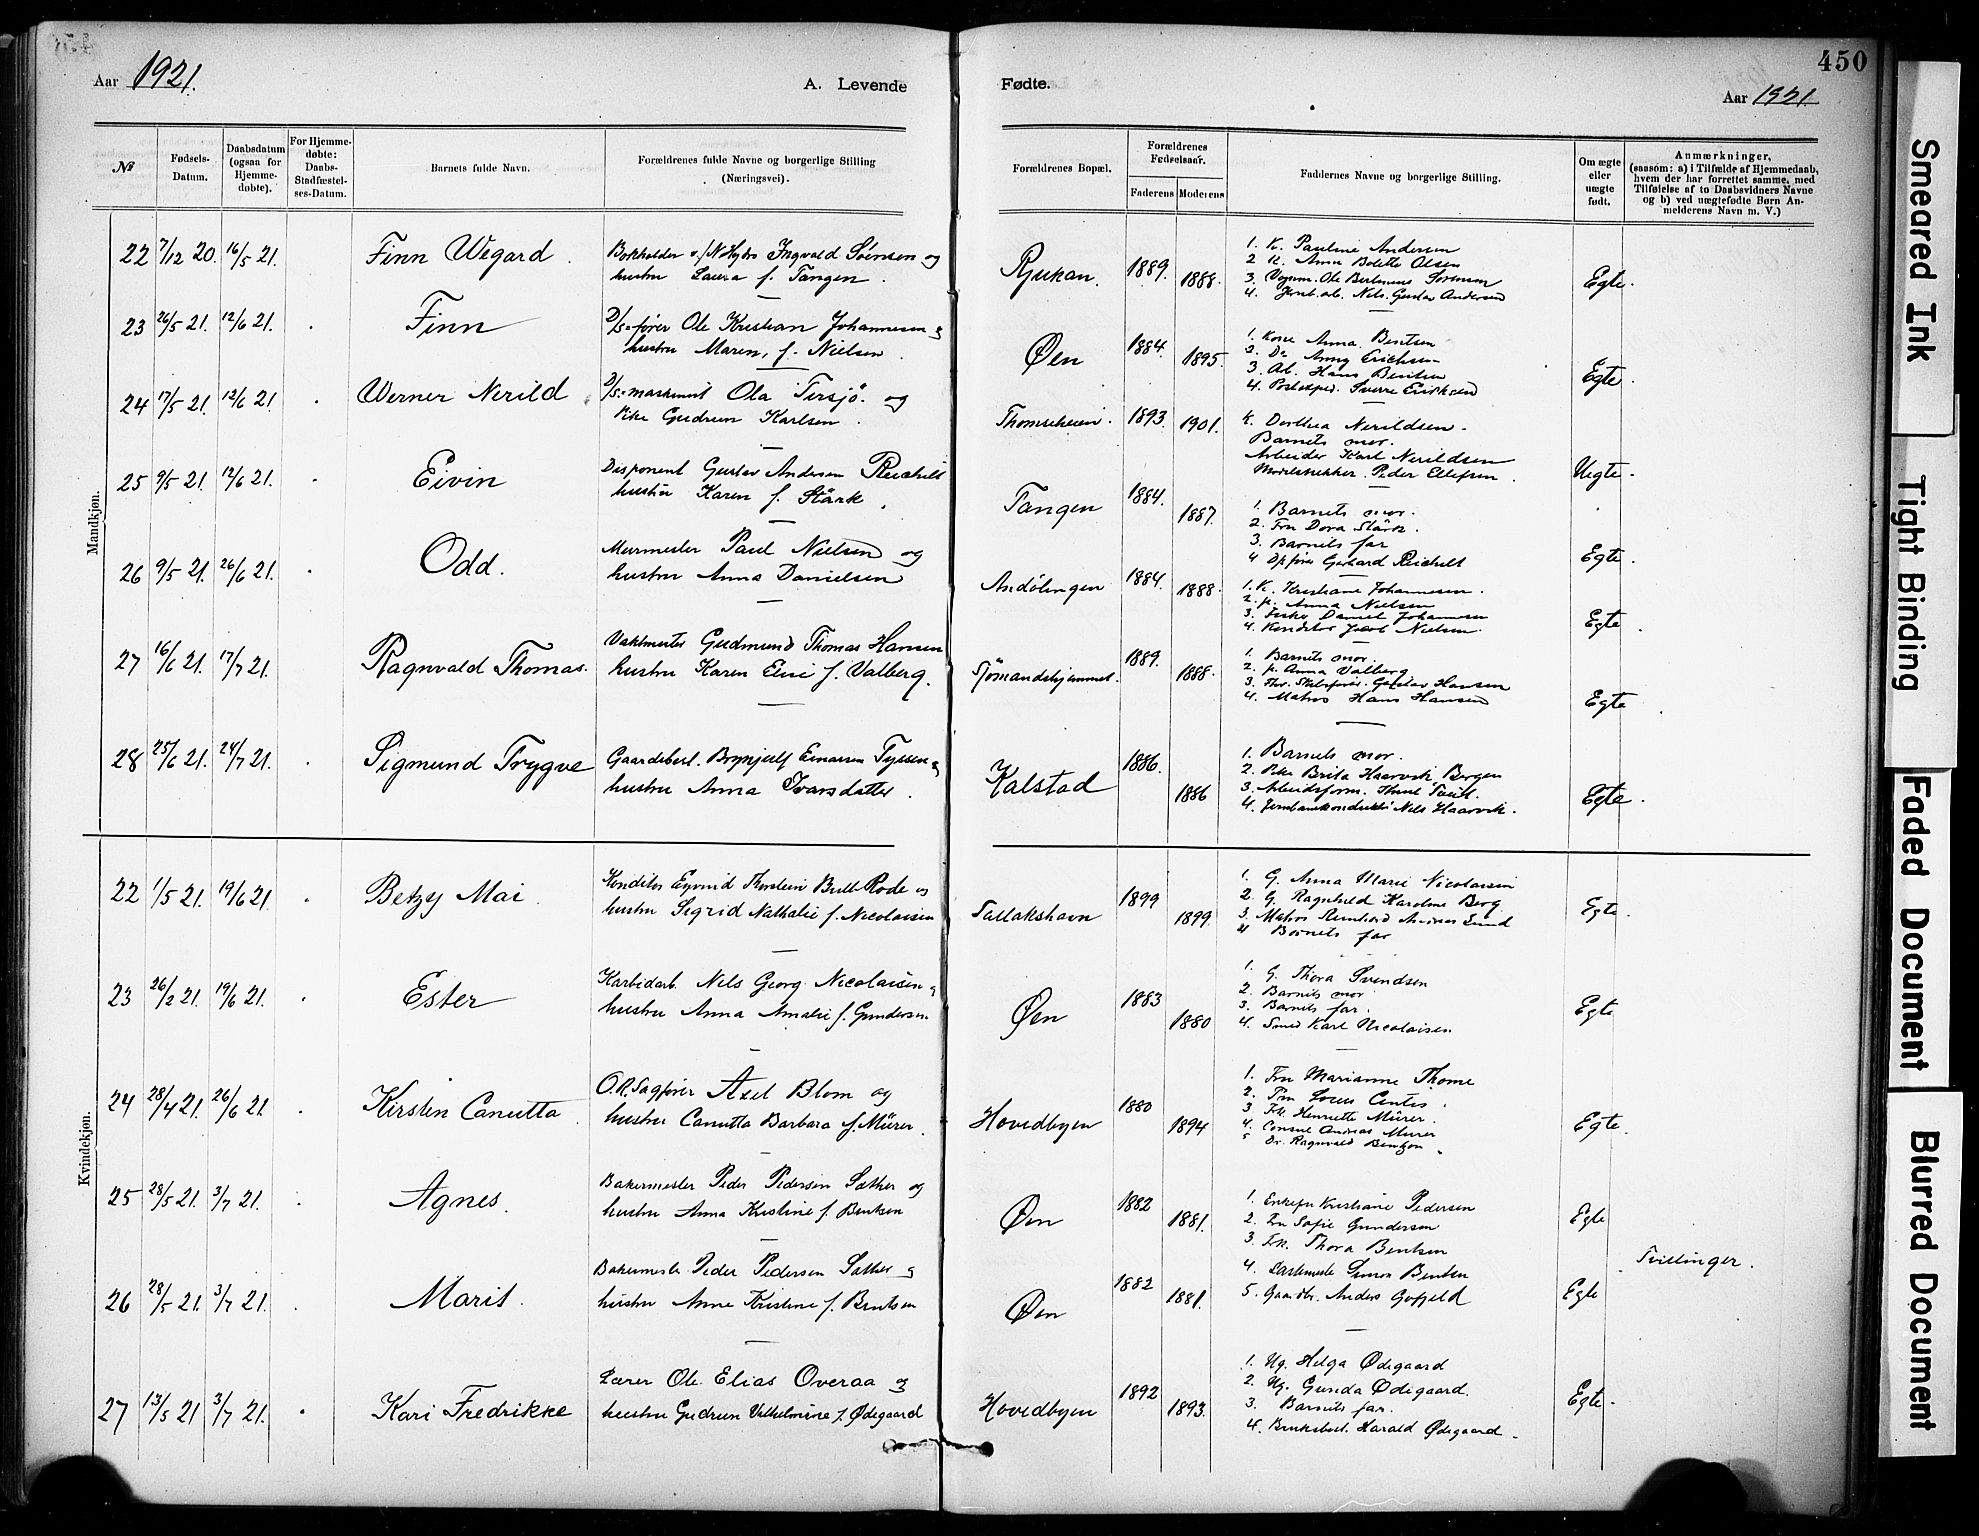 450
Aar 1921.
A. Levende
Fødte.
Aar 1921.
№
Fødsels-Datum.
Daabsdatum (ogsaa for Hjemmedøbte).
For Hjemmedøbte: Daabs-Stadfæstelses-Datum.
Barnets fulde Navn.
Forældrenes fulde Navne og borgerlige Stilling (Næringsvei).
Forældrenes Bopæl.
Forældrenes Fødselsaar.
Faderens
Moderens
Faddernes Navne og borgerlige Stilling.
Om ægte eller uægte født.
Anmærkninger, (saasom: a) i Tilfælde af Hjemmedaab, hvem der har forrettet samme, med Tilføielse af to Daabsvidners Navne og b) ved uægtefødte Børn Anmelderens Navn m. V.)
Mandkjøn.
22 7/12 20. 16/5 21. Finn Wegard. Bokholder v/ N. Hydro Ingvald Sørensen og
hustru Laura f. Tangen.
Rjukan. 1889. 1888.
1. K. Pauline Andersen
2. K. Anna Bolette Olsen
3. Ole Sørensen
4. Jernb.arb. Nels Gustav Andersen
Egte.
23 26/5 21. 12/6 21. Finn D/s-fører Ole Kristian Johannesen og
hustru Maren, f. Nielsen.
Øen 1884. 1895.
1. Kone Anna Bentsen
2. Do Anny Erichsen
3. Arb. Hans Bentsen
4. Postexped. Sverre Eriksen
Egte.
24 17/5 21. 12/6 21. Werner Nerild D/s-maskinist Ola Tersjø og
Pike Gudrun Karlsen.
Thomseheien. 1893. 1901.
K. Dorthea Nerildsen.
Barnets mor.
Arbeider Karl Nerildsen
Peder Ellefsen.
Uegte.
25 9/5 21. 12/6 21. Eivin Disponent Gustav Andersen Reichelt
hustru Karen f. Stärk.
Tangen 1884. 1887.
1. Barnets mor.
2. Fru Dora Stärk.
3. Barnets far
4. Gerhard Reichelt
Egte.
26 9/5 21. 26/6 21. Odd. Murmester Paul Nielsen og
hustru Anna Danielsen
Andølingen 1884. 1888.
1. K. Kristiane Johannesen.
2. p. Anna Nielsen
3. Fisker Daniel Johannesen
4. Konditor Jacob Nielsen.
Egte.
27 16/6 21. 17/7 21. Ragnvald Thomas. Vaktmester Gudmund Thomas Hansen
hustru Karen Elise f. Valberg.
Sjømandshjemmet. 1889. 1888.
1. Barnets mor.
2. p. Anna Valberg
3. Gustav Hansen
4. Matros Hans Hansen
Egte.
28 25/6 21. 24/7 21. Sigmund Trygve Gaardsbest. Brynjulf Einarsen Tyssen og
hustru Anna Ivarsdatter.
Kalstad 1886. 1886
1. Barnets mor.
2. Pike Brita Haarvik Bergen
3. Arbeidsform.
4. Jernbanekonduktør Nils Haarvik.
Egte.
Kvindekjøn.
22 1/5 21. 19/6 21. Betzy Mai. Konditor Eyvind Thorstein Bull Rode og
hustru Sigrid Nathalie f. Nicolaisen
Tallakshavn 1899 1899.
1. G. Anna Marie Nicolaisen
2. G. Ragnhild Karoline Berg
3. Matros Reinhard Andreas Lund
4 Barnets far
Egte.
23 26/2 21. 19/6 21. Ester Karbidarb. Nels Georg Nicolaisen og
hustru Anna Amalie f. Gundersen
Øen 1883 1880
1. G. Thora Svendsen
2. Barnets mor
3. Barnets far.
4. Smed Karl Nicolaisen
Egte
24 28/4 21. 26/6 21 Kirsten Canutta O.R.Sagfører Axel Blom og
hustru Canutta Barbara f. Mürer.
Hovedbyen 1880 1894
1. Fru Marianne Thome
2. Fru
3. Frk. Henriette Mürer.
4. Consul Andreas Mürer
5 Dr. Ragnvald Bentzon
Egte.
25 28/5 21. 3/7 21. Agnes. Bakermester Peder Pedersen Sæther og
hustru Anna Kristine f. Bentsen
Øen 1882 1881.
1. Enkefru Kristiane Pedersen
2. Fru Sofie Gundersen
3. Frk. Thora Bentsen
Egte
Tvillinger.
26 28/5 21. 3/7 21. Marit. Bakermester Peder Pedersen Sæther og
hustru Anna Kristine f. Bentsen
Øen 1882 1881.
4. Simon Bentsen
5. Gaardbr. Anders
Egte
27 13/5 21 3/7 21. Kari Fredrikke Lærer Ole Elias Overaa og
hustru Gudrun Vilhelmine f. Ødegaard
Hovedbyen 1892 1893.
1. Ug. Helga Ødegaard
2. Ug. Gunda Ødegaard.
3. Barnets far.
4. Bruksbest. Harald Ødegaard.
Egte.
Smeared Ink
Tight Binding
Faded Document
Blurred Document